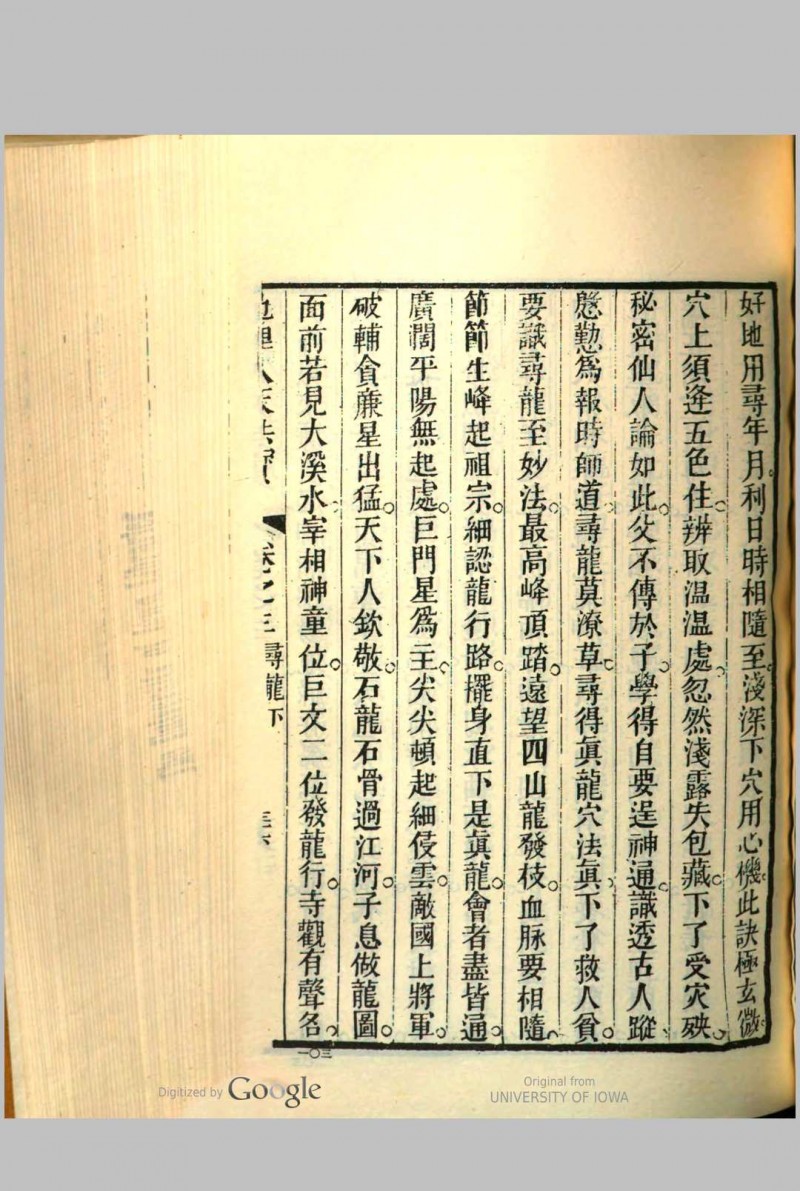 好地用尋年月。利日時相隨至。淺深下穴用心機。此訣極玄微。
穴上須逢五色住。辨取温温處。忽然淺露失包藏。下了受灾殃。
秘密仙人論如此。父不傳於子。學得自要逞神通。識透古人蹤。
慇懃爲報時師道。尋龍莫潦草。尋得眞龍穴法眞。下了救人貧。
要識尋龍至妙法。最高峰頂踏。遠望四山龍發枝。血脉要相隨。
節節生峰起祖宗。細認龍行路。擺身直下是眞龍。會者盡皆通。
廣濶平陽無起處。巨門星爲主。尖尖頓起細侵雲。敵國上將軍。
破輔貪廉星出猛。天下人欽敬。石龍石骨過江河。子息做龍圖。
面前若見大溪水。宰相神童位。巨文二位發龍行。寺觀有聲名。
卷之三 尋龍下
三六
一〇三
Digitized by Google
Original from
UNIVERSITY OF IOWA